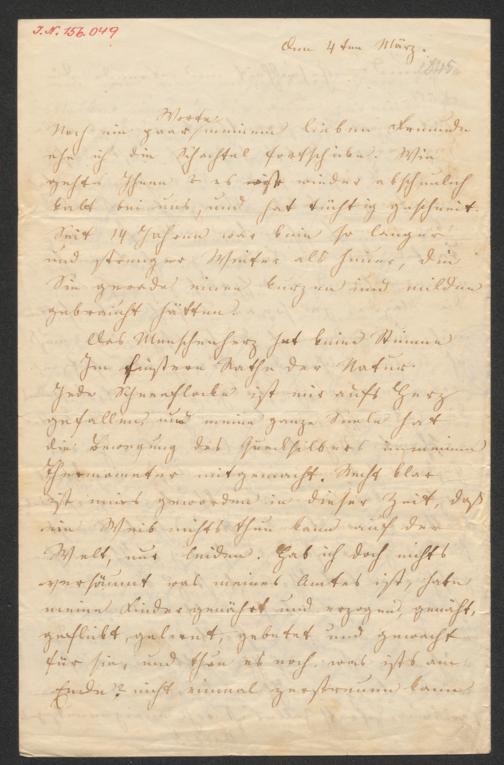 J.N. 156.049
Den 4ten März.
1845
Worte
Noch ein paar meinem lieben Freunde
ehe ich die Schachtel fortschicke. Wie
gehts Ihnen? es ist wieder abscheulich
kalt bei uns, und hat tüchtig geschneit.
Seit 14 Jahren war kein so langer
und strenger Winter als heuer, die
Sie gerade einen kurzen und milden
gebraucht hätten.
Das Menschenherz hat keine Stimme
Im finstern Rathe der Natur.
Jede Schneeflocke ist mir aufs Herz
gefallen, und meine ganze Seele hat
die Bewegung des Quecksilbers in meinem
Thermometer mitgemacht. Recht klar
ist mirs geworden in dieser Zeit, daß
ein Weib nichts thun kann auf der
Welt, nur leiden. Hab ich doch nichts
versäumt was meines Amtes ist, habe
meine Kinder genährt und erzogen, genäht,
geflickt, gelernt, gebetet und gewacht
für sie, und thue es noch, was ists am
Ende? nicht einmal zerstreuen kann